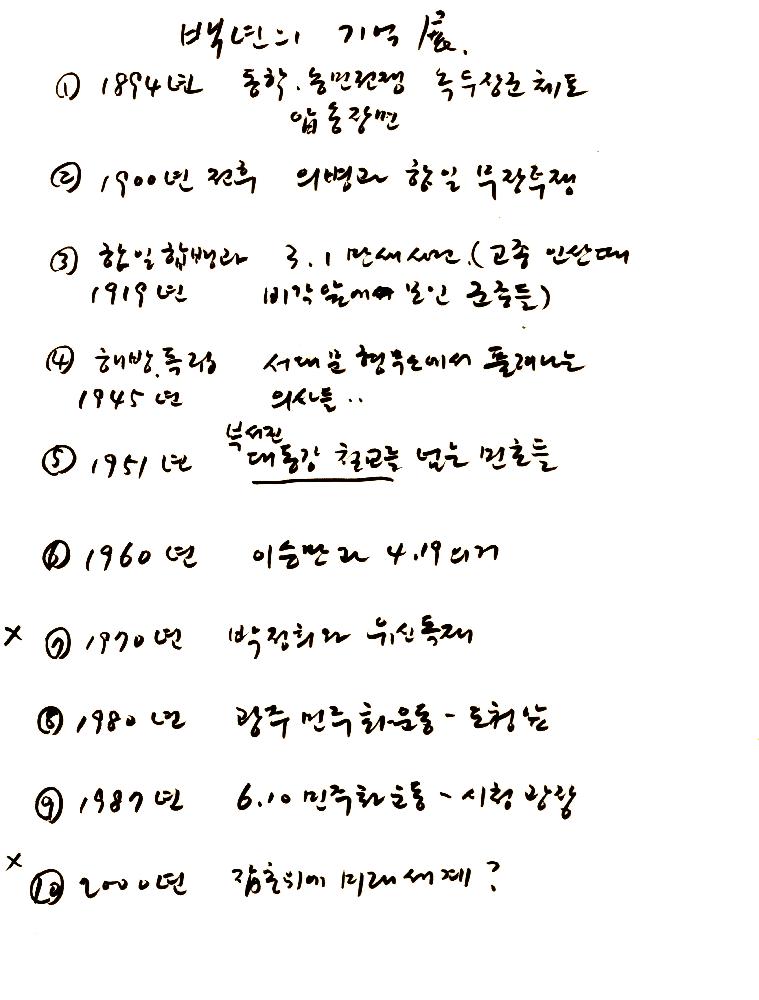 백년의 기억 展.
① 1894년 동학.농민전쟁 녹두장군 체포
압송장면
② 1900년 전후 의병과 항일 무장투쟁
③ 한일합병과 3.1 만세사건.(고종 인산때
1919년 비각앞에서 모인 군중들)
④ 해방.독립 서대문 형무소에서 풀려나는
1945년 의사들..
부서진
⑤ 1951년 대동강 철교를 넘는 민초들
⑥ 1960년 이승만과 4.19의거
× ⑦ 1970년 박정희와 유신독재
⑧ 1980년 광주민주화운동 - 도청앞
⑨ 1987년 6.10 민주화운동 - 시청광장
× ⑩ 2000년 미래세계?